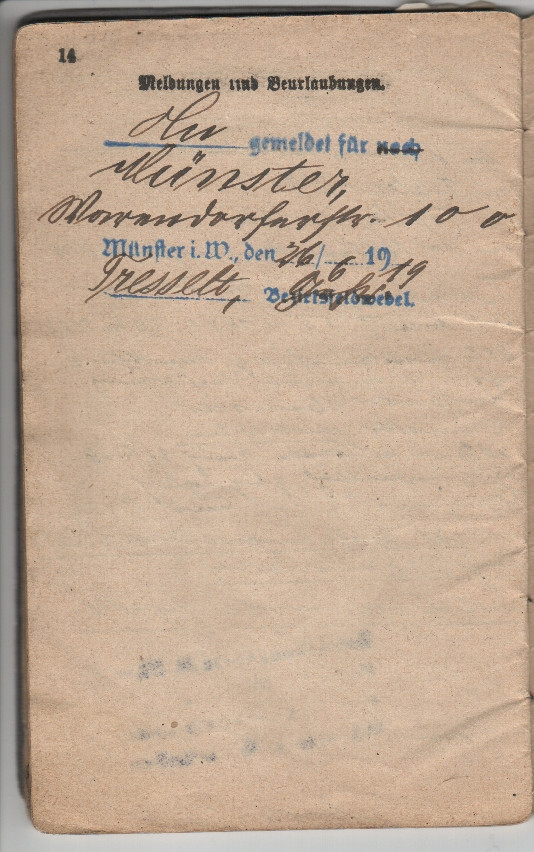 14
Meldungen und Beurlaubungen.
gemeldet für nach
Münster,
Warendorferstr. 100
Münster i. W., den 26/6 19 19
Bezirksfeldwebel.